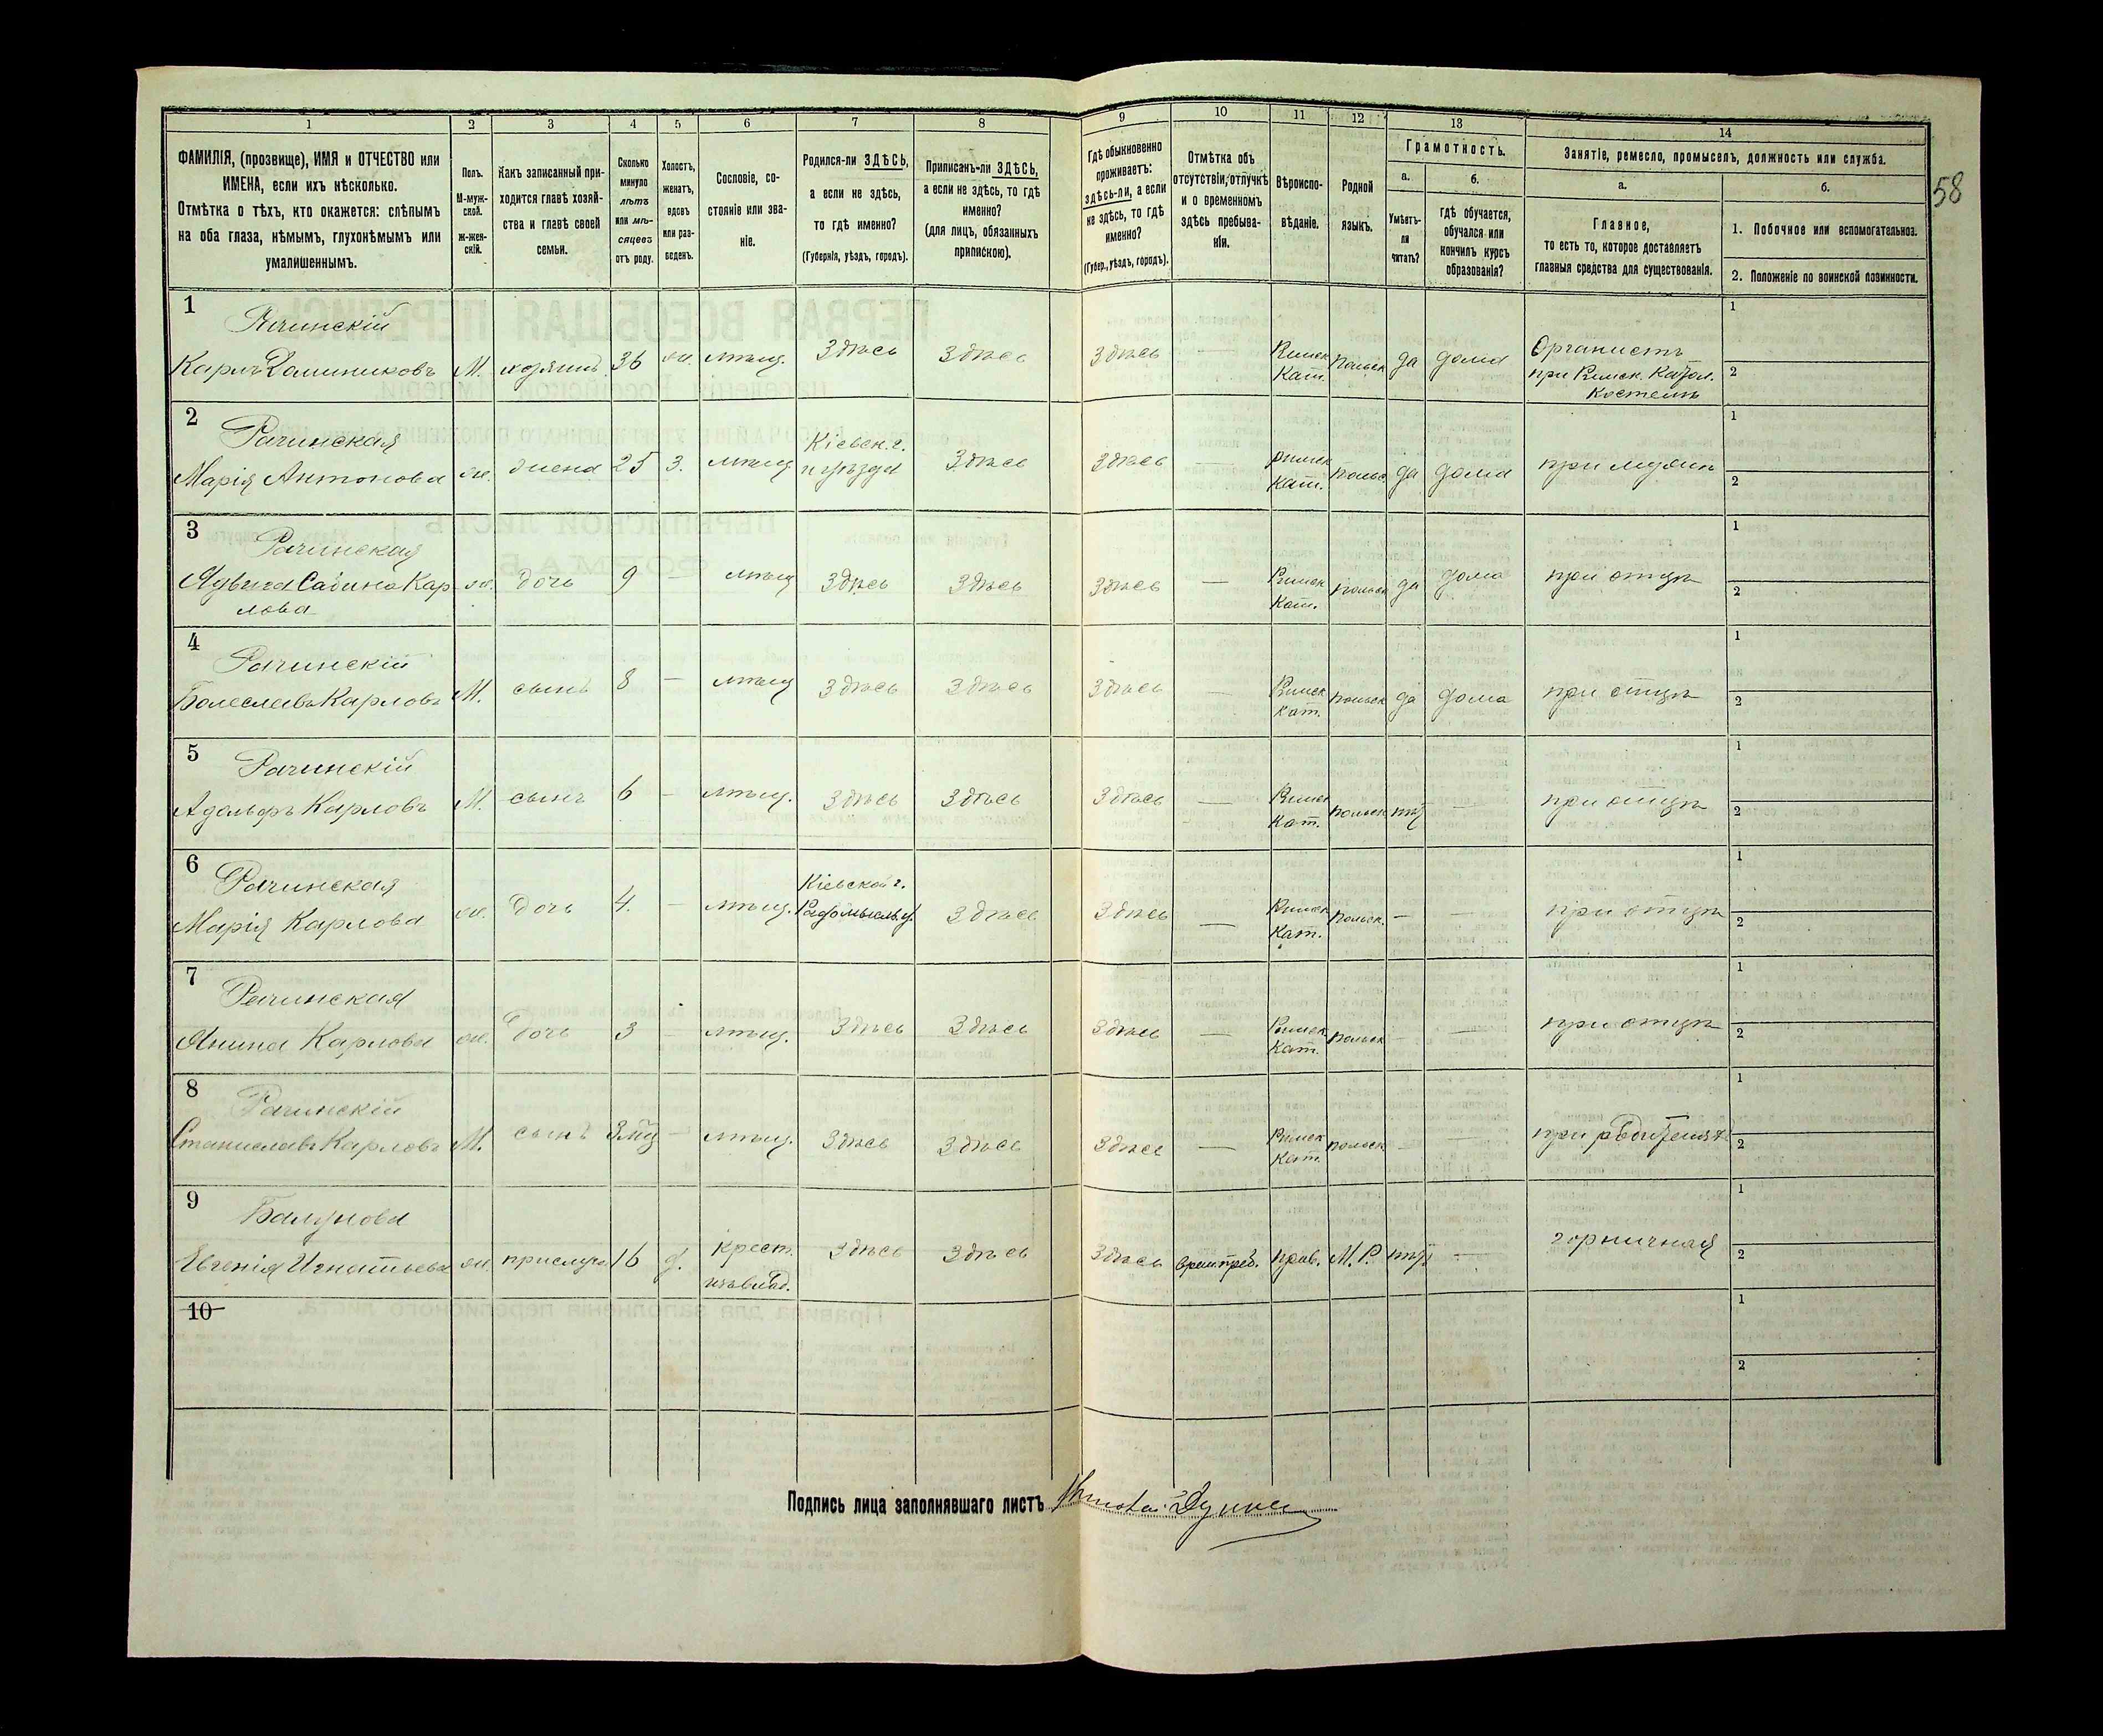 58
1 2 3 4 5 6 7 8 9 10 11 12 13 14
ФАМИЛІЯ, (прозвище), ИМЯ и ОТЧЕСТВО или
ИМЕНА, если ихъ нѣсколько.
Отмѣтка о тѣхъ, кто окажется: слѣпымъ
на оба глаза, нѣмымъ, глухонѣмымъ или
умалишеннымъ.
Полъ.
М-муж-
ской.
Ж-жен-
скій.
Какъ записанный при-
ходится главѣ хозяй-
ства и главѣ своей
семьи.
Сколько
минуло
лѣтъ
или мѣ-
сяцевъ
отъ роду.
Холостъ,
женатъ,
вдовъ
или раз-
веденъ.
Сословіе, со-
стояніе или зва-
ніе.
Родился-ли ЗДѢСЬ,
а если не здѣсь,
то гдѣ именно?
(Губернія, уѣздъ, городъ).
Приписанъ-ли ЗДѢСЬ,
а если не здѣсь, то гдѣ
именно?
(для лицъ, обязанныхъ
припискою).
Гдѣ обыкновенно
проживаетъ:
здѣсь-ли, а если
не здѣсь, то гдѣ
именно?
(Губер., уѣздъ, городъ).
Отмѣтка объ
отсутствіи, отлучкѣ
и о временномъ
здѣсь пребыва-
ніи.
Вѣроиспо-
вѣданіе.
Родной
языкъ.
Грамотность.
а.
Умѣетъ-
ли
читать?
б.
гдѣ обучается,
обучался или
кончилъ курсъ
образованія?
Занятіе, ремесло, промыселъ, должность или служба.
а.
Главное,
то есть то, которое доставляетъ
главныя средства для существованія.
б.
1. Побочное или вспомогательное.
2. Положеніе по воинской повинности.
1
Рачинскій
Карлъ Доминиковъ М. хозяинъ 36 ж. мѣщ. Здѣсь Здѣсь Здѣсь — Римск. Кат. Польск. да дома Органистъ
при Римск. Катол.
Костелѣ
1
2
2
Рачинская
Марія Антонова ж. жена 25 З. мѣщ. Кіевск. г. и уѣзда Здѣсь Здѣсь — римск. Кат. Польс. да дома при мужѣ
1
2
3
Рачинская
Ядвига Сабина Кар-
лова
ж. дочь 9 — мѣщ Здѣсь Здѣсь Здѣсь — Римск Кат. польск да дома при отцѣ
1
2
4
Рачинскій
Болеславъ Карловъ М. сынъ 8 — мѣщ Здѣсь Здѣсь Здѣсь — Римск Кат. польск да дома при отцѣ
1
2
5
Рачинскій
Адольфъ Карловъ М. сынъ 6 — мѣщ. Здѣсь Здѣсь Здѣсь — Римск Кат. польск нѣтъ — при отцѣ
1
2
6
Рачинская
Марія Карлова ж. дочь 4. — мѣщ. Кіевской г. Радомысльск. у. Здѣсь Здѣсь — Римск Кат. Польск. — — при отцѣ
1
2
7
Рачинская
Янина Карлова ж. дочь 3 — мѣщ. Здѣсь Здѣсь Здѣсь — Римск Кат. польск — — при отцѣ
1
2
8
Рачинскій
Станиславъ Карловъ М. сынъ 3 мц — мѣщ. Здѣсь Здѣсь Здѣсь — Римск Кат. польск. — — при родителяхъ
1
2
9
Евгенія Игнатьева ж. прислуга 16 д. крест. Здѣсь Здѣсь Здѣсь прав. М. Р. нѣтъ — горничная
1
2
10
1
2
Подпись лица заполнявшаго листъ